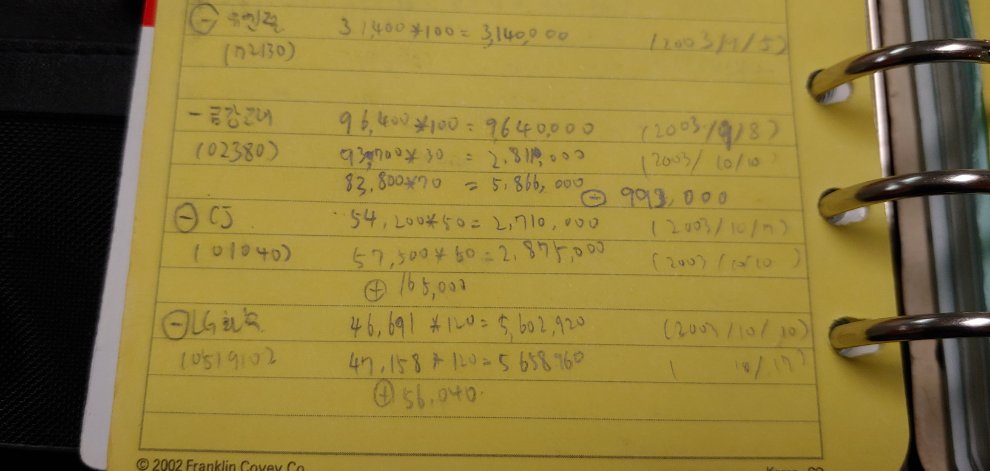 ⊖ 유일전 31,400*100=3,140,000 (2003/9/5)
(72130)
- 금강고려 96,400*100=9640,000 (2003/9/8)
(02380) 93,700*30=2,811,000 (2003/10/10
83,800*70=5,866,000 ⊖ 993,000
⊖ CJ 54,200*50=2,710,000 (2003/10/7)
(01040) 57,500*50=2,875,000 (2003/10/10)
⊕ 165,000
⊖ LG화학 46,691*120=5,602,920 (2003/10/10)
(051910) 47,158*120=5658960 ( 10/17)
⊕ 56,040
© 2002 Franklin Covey Co.